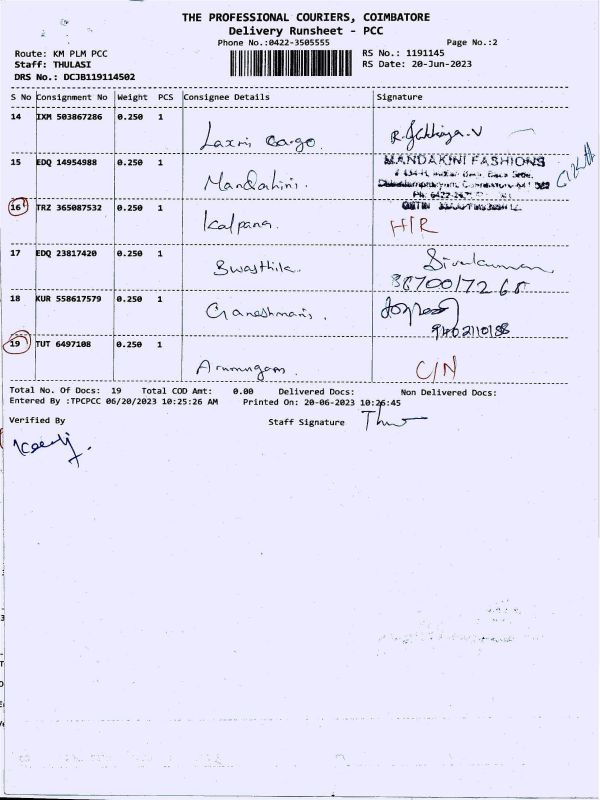 THE PROFESSIONAL COURIERS, COIMBATORE
Delivery Runsheet - PCC
Phone No.:0422-3505555 Page No.:2
Route: KM PLM PCC RS No.: 1191145
Staff: THULASI RS Date: 20-Jun-2023
DRS No.: DCJB119114502
S No Consignment No Weight PCS Consignee Details Signature
14 IXM 503867286 0.250 1
Laxmi Cargo.
15 EDQ 14954988 0.250 1 MANDAKINI FASHIONS
Mandakini.
16 TRZ 365087532 0.250 1
Kalpana. H/R
17 EDQ 23817420 0.250 1 Sivakumar
Swasthik.
18 KUR 558617579 0.250 1
Ganeshmani.
19 TUT 6497108 0.250 1
Arumugam. C/N
Total No. Of Docs: 19 Total COD Amt: 0.00 Delivered Docs: Non Delivered Docs:
Entered By :TPCPCC 06/20/2023 10:25:26 AM Printed On: 20-06-2023 10:26:45
Verified By Staff Signature